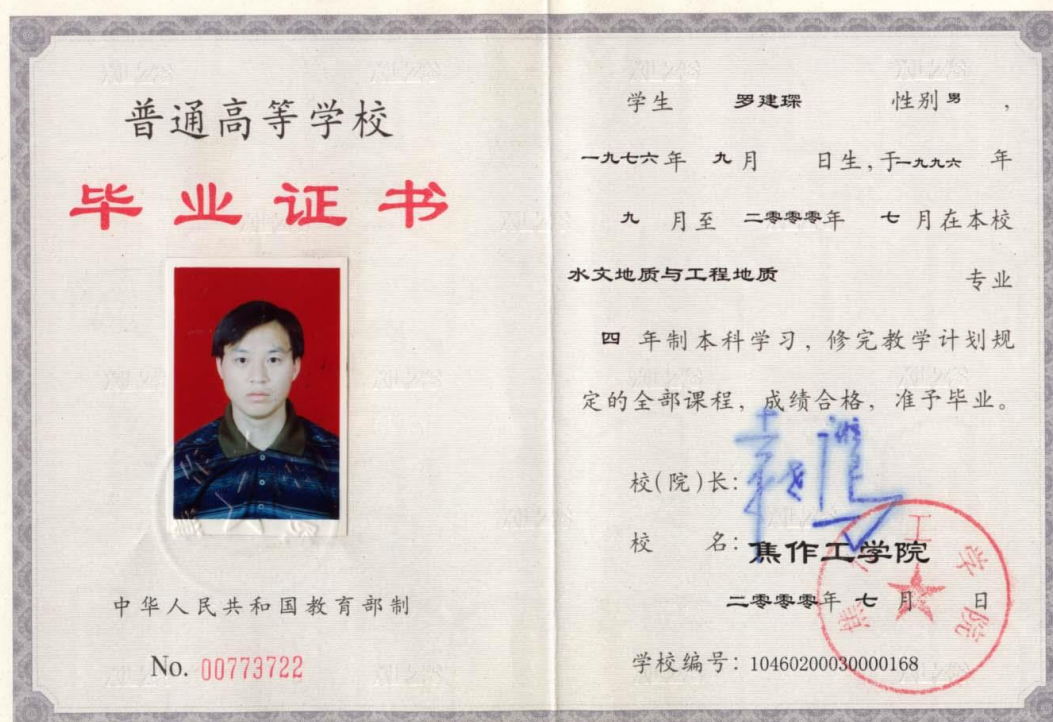 普通高等学校
毕业证书
中华人民共和国教育部制
No. 00773722
学生 罗建琛 性别男，
一九七六年 九月 日生，于一九九六 年
九 月至 二零零零年 七 月在本校
水文地质与工程地质 专业
四 年制本科学习，修完教学计划规
定的全部课程，成绩合格，准予毕业。
校(院)长：
校 名：焦作工学院
二零零零年 七 月 日
学校编号：10460200030000168
焦作工学院